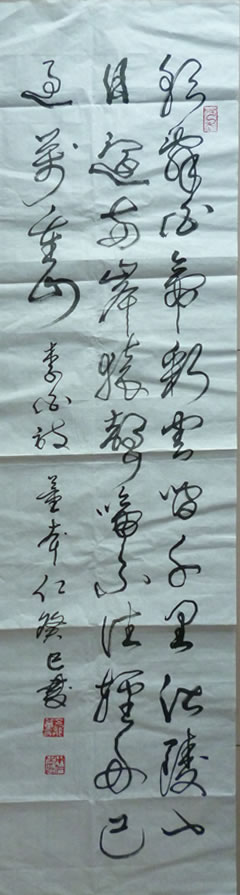 朝辭白帝彩雲間千里江陵一
日還兩岸猿聲啼不住輕舟已
過萬重山 李白詩 董本仁 癸巳夏